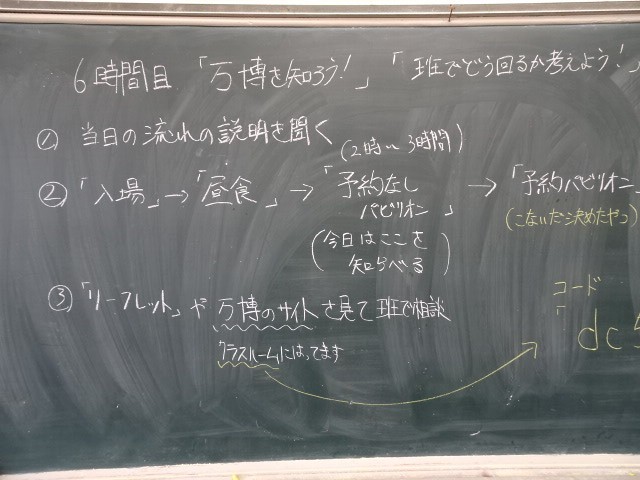 6時間目 「万博を知ろう!」「班でどう回るか考えよう!」
① 当日の流れの説明を聞く
(2時〜3時間)
② 「入場」→「昼食」→「予約なしパビリオン」→「予約パビリオン
(今日はここを知らべる)
(こないだ決めたやつ)
③ 「リーフレット」や万博のサイトを見て班で相談
クラスルームにはってます
コード
「dc5